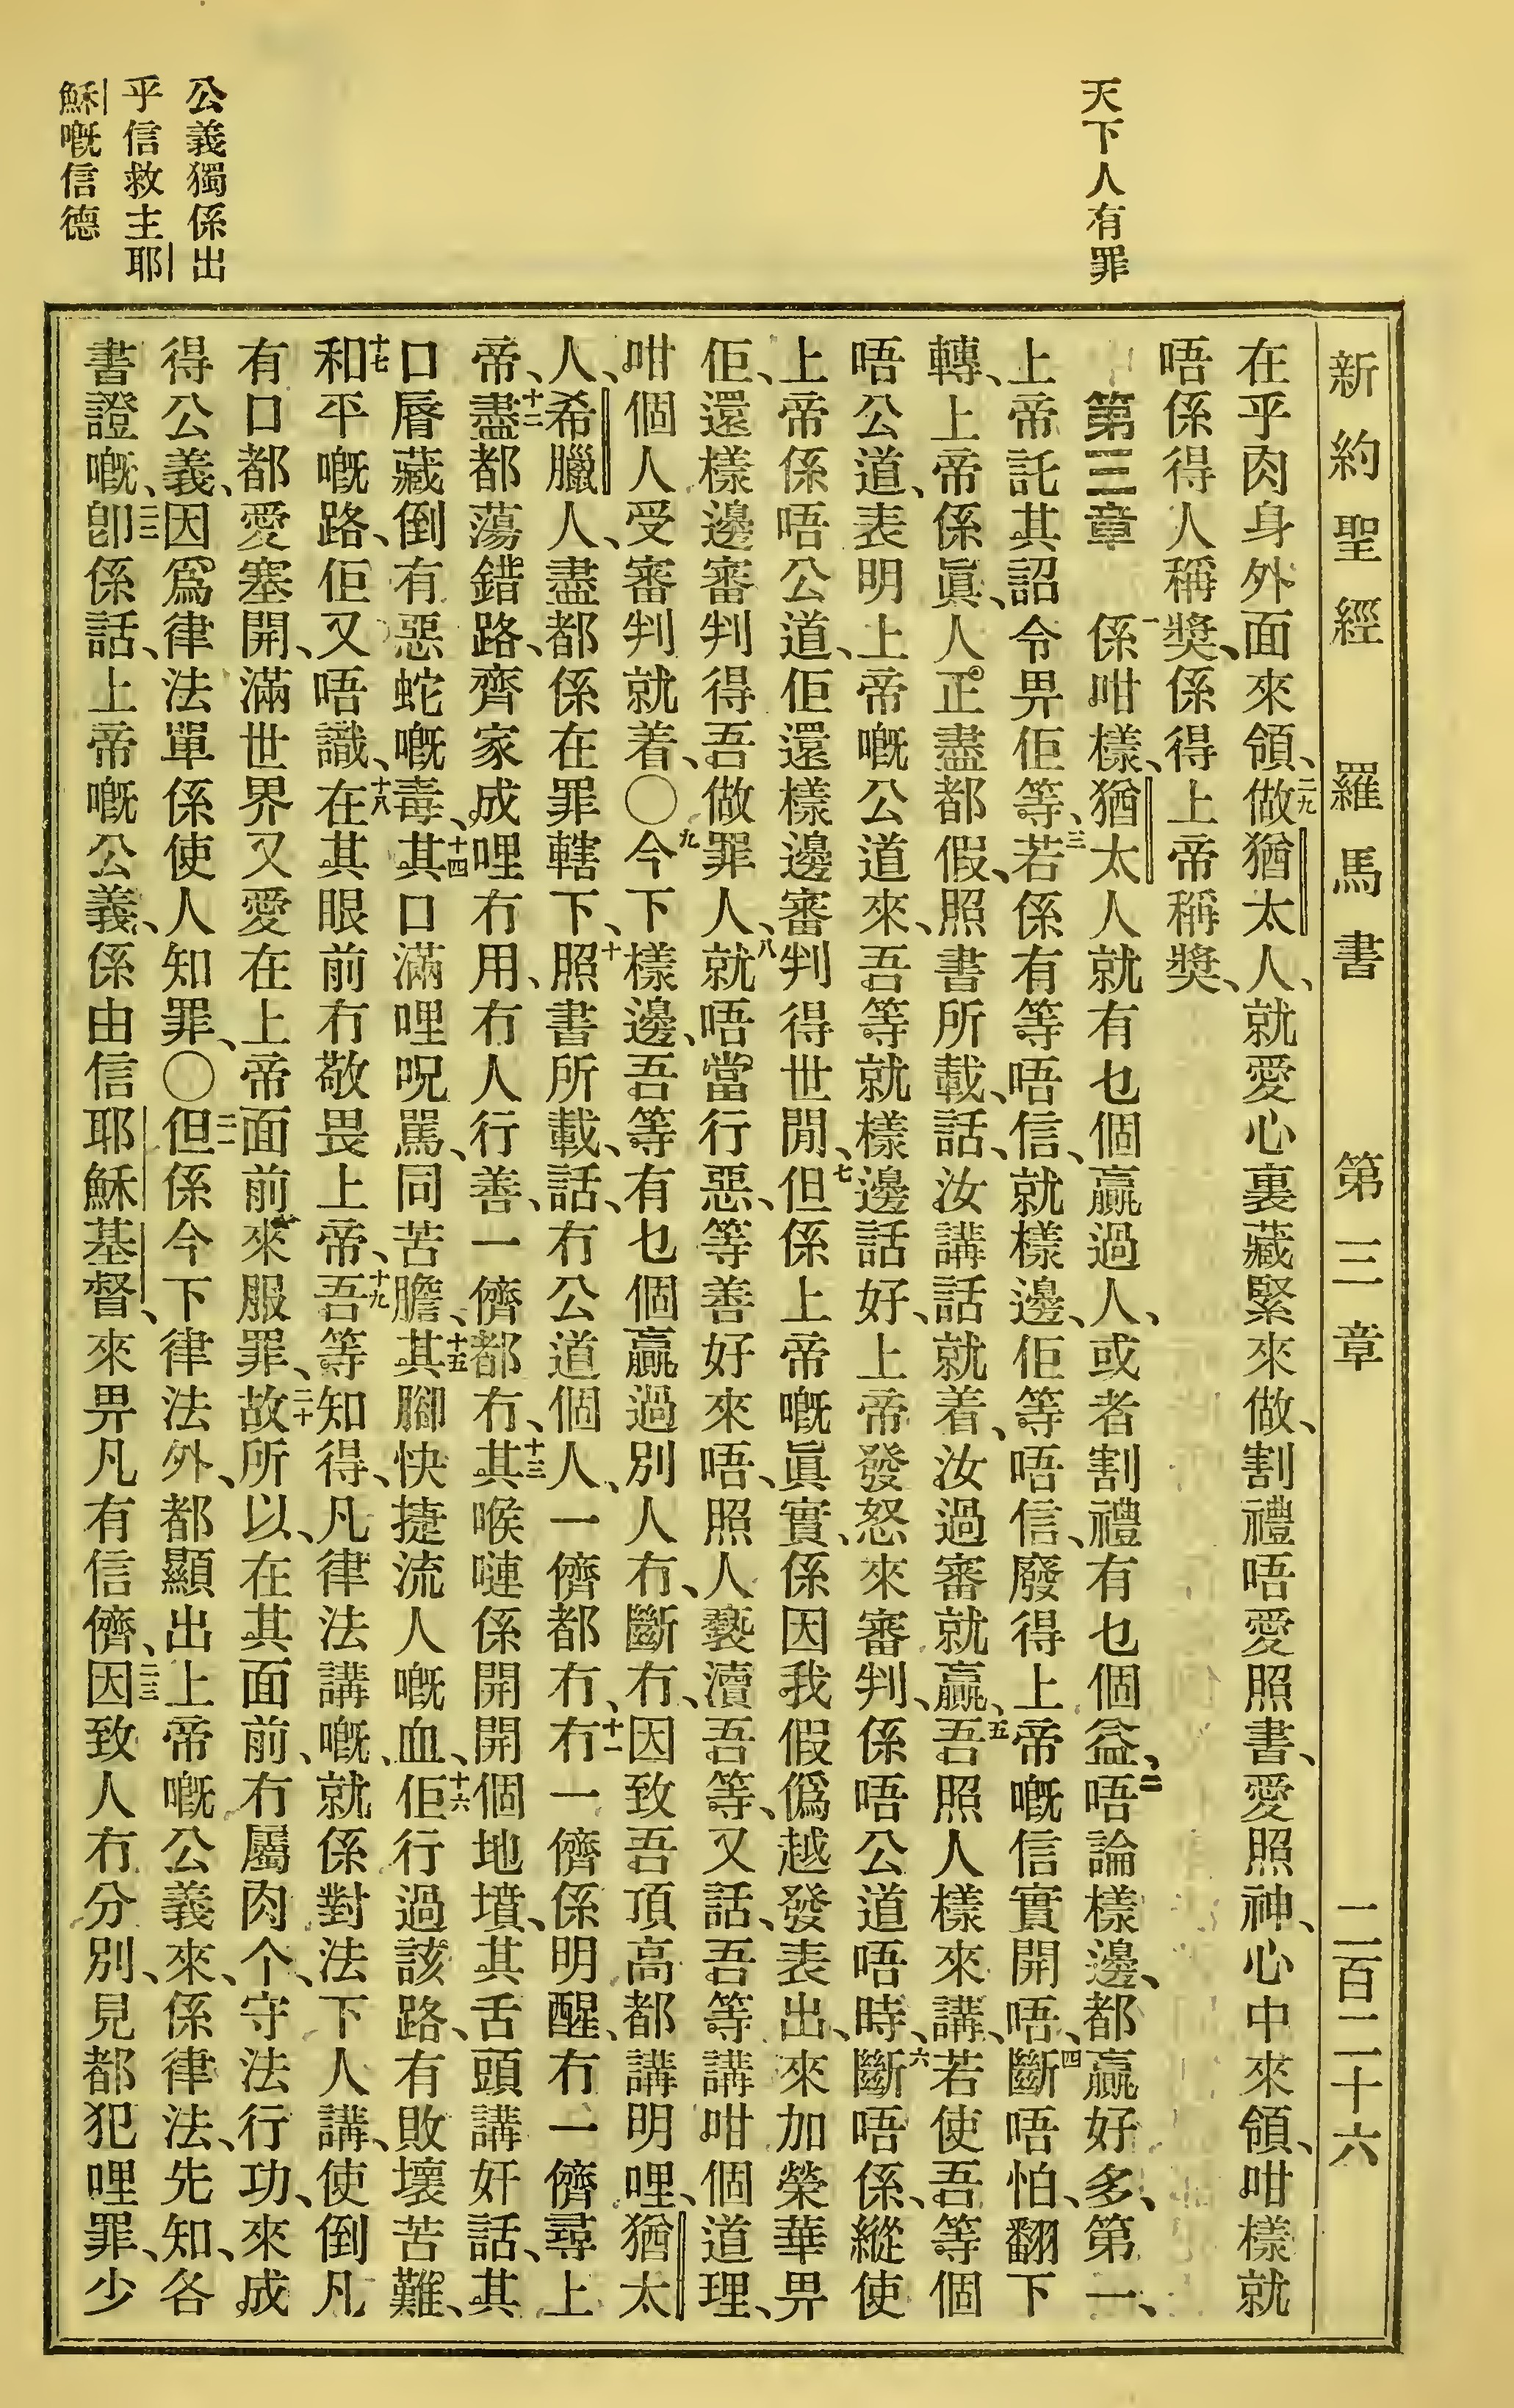 新約聖經　羅馬書　第三章　二百二十六
天下人有罪
公義獨係出
乎信救主耶
穌嘅信德
在乎肉身外面來領、二九做猶太人、就愛心裏藏緊來做、割禮唔愛照書、愛照神、心中來領、咁樣就
唔係得人稱奬、係得上帝稱奬、
第三章　一係咁樣、猶太人就有乜個贏過人、或者割禮有乜個益、二唔論樣邊、都贏好多、第一、
上帝託其詔令畀佢等、三若係有等唔信、就樣邊、佢等唔信、廢得上帝嘅信實開唔、四斷唔怕、翻下
轉、上帝係眞、人正盡都假、照書所載、話、汝講話就着、汝過審就贏、五吾照人樣來講、若使吾等個
唔公道、表明上帝嘅公道來、吾等就樣邊話好、上帝發怒來審判、係唔公道唔時、六斷唔係、縱使
上帝係唔公道、佢還樣邊審判得世間、七但係上帝嘅眞實、係因我假僞越發表出、來加榮華畀
佢、還樣邊審判得吾做罪人、八就唔當行惡、等善好來唔、照人褻瀆吾等、又話、吾等講咁個道理、
咁個人受審判就着、○九今下樣邊、吾等有乜個贏過別人冇、斷冇、因致吾頂高都講明哩、猶太
人、希臘人、盡都係在罪轄下、十照書所載、話、冇公道個人、一儕都冇、十一冇一儕係明醒、冇一儕尋上
帝、十二盡都蕩錯路、齊家成哩冇用、冇人行善、一儕都冇、十三其喉嗹係開開個地墳、其舌頭講奸話、其
口脣藏倒有惡蛇嘅毒、十四其口滿哩呪駡、同苦膽、十五其腳快捷流人嘅血、十六佢行過該路、有敗壞苦難、
十七和平嘅路、佢又唔識、十八在其眼前冇敬畏上帝、十九吾等知得、凡律法講嘅、就係對法下人講、使倒凡
有口都愛塞開、滿世界又愛在上帝面前來服罪、二十故所以、在其面前、冇屬肉个、守法行功、來成
得公義、因爲律法單係使人知罪、○二一但係今下律法外、都顯出上帝嘅公義來、係律法、先知、各
書證嘅、二二卽係話、上帝嘅公義、係由信耶穌基督、來畀凡有信儕、二三因致人冇分別、見都犯哩罪、少